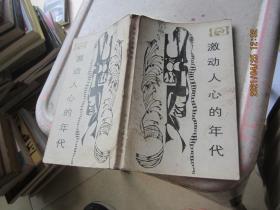 激动人心的年代
激动人心的年代